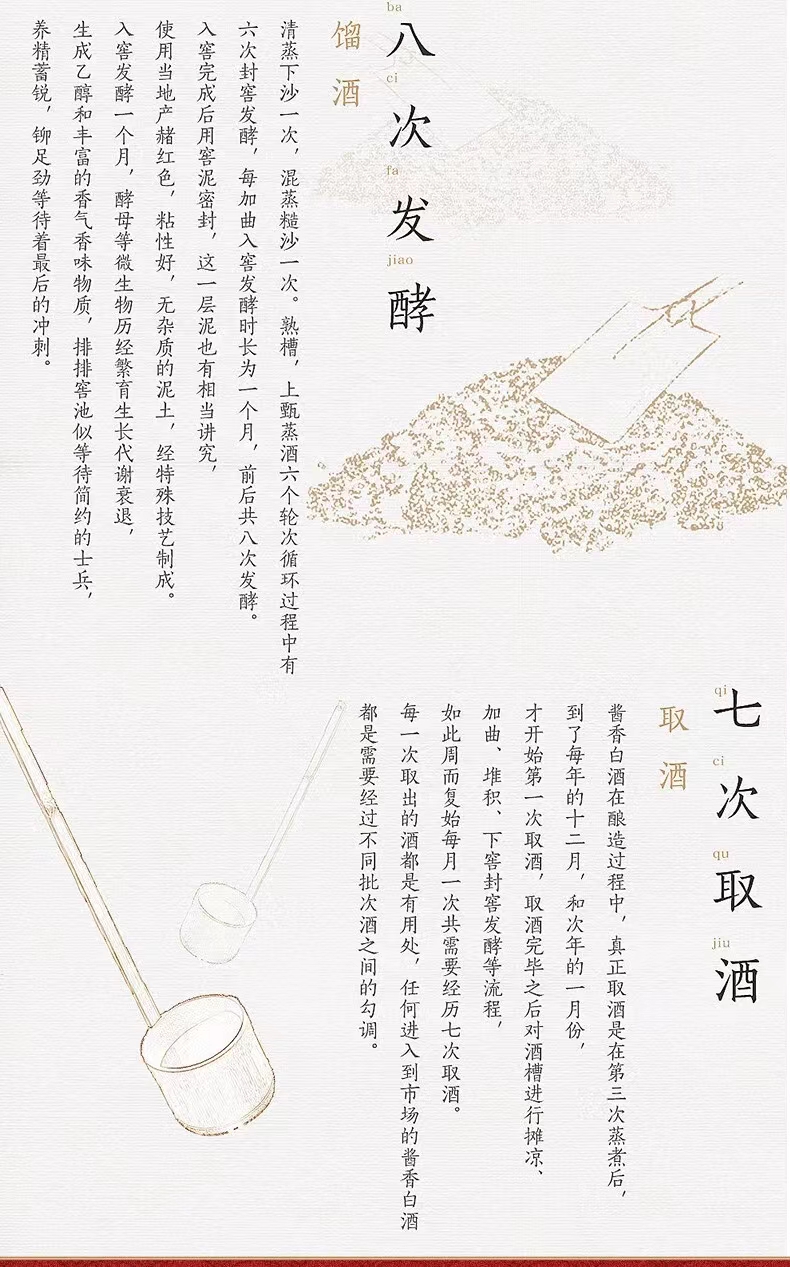 ba
八
ci
次
fa
发
jiao
酵
馏酒
清蒸下沙一次，混蒸糙沙一次。熟槽，上甄蒸酒六个轮次循环过程中有
六次封窖发酵，每加曲入窖发酵时长为一个月，前后共八次发酵。
入窖完成后用窖泥密封，这一层泥也有相当讲究，
使用当地产赭红色，粘性好，无杂质的泥土，经特殊技艺制成。
入窖发酵一个月，酵母等微生物历经繁育生长代谢衰退，
生成乙醇和丰富的香气香味物质，排排窖池似等待简约的士兵，
养精蓄锐，铆足劲等待着最后的冲刺。
qi
七
ci
次
qu
取
jiu
酒
取酒
酱香白酒在酿造过程中，真正取酒是在第三次蒸煮后，
到了每年的十二月，和次年的一月份，
才开始第一次取酒，取酒完毕之后对酒槽进行摊凉、
加曲、堆积、下窖封窖发酵等流程，
如此周而复始每月一次共需要经历七次取酒。
每一次取出的酒都是有用处，任何进入到市场的酱香白酒
都是需要经过不同批次酒之间的勾调。